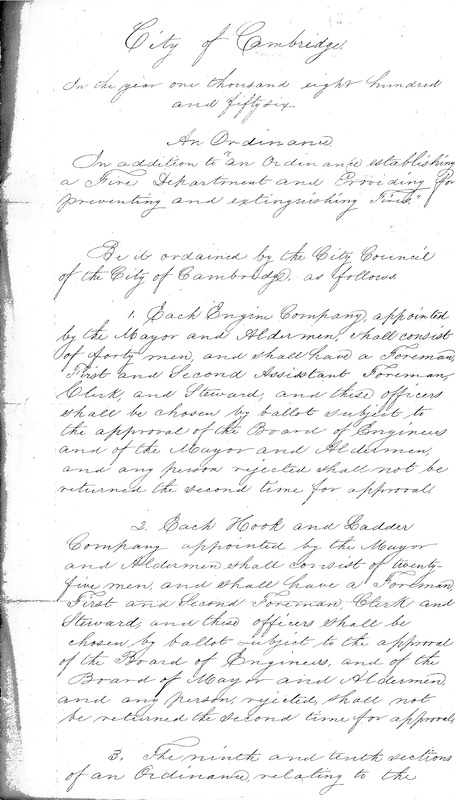 City of Cambridge.
In the year one thousand eight hundred
and fifty six
An Ordinance
In addition to "an Ordinance establishing
a Fire Department and Providing for
preventing and extinguishing Fires."
Be it ordained by the City Council
of the City of Cambridge, as follows
1. Each Engine Company, appointed
by the Mayor and Aldermen, shall consist
of forty men, and shall have a Foreman,
First and Second Assistant Foreman,
Clerk, and Steward, and these officers
shall be chosen by ballot subject to
the approval of the Board of Engineers
and of the Mayor and Aldermen,
and any person rejected shall not be
returned the second time for approval.
2. Each Hook and Ladder
Company appointed by the Mayor
and Aldermen shall consist of twenty-
five men, and shall have a Foreman,
First and Second Foreman, Clerk and
Steward, and these officers shall be
chosen by ballot subject to the approval
of the Board of Engineers, and of the
Board of Mayor and Aldermen,
and any person, rejected, shall not
be returned the second time for approval,
3. The ninth and tenth sections
of an Ordinance, relating to the